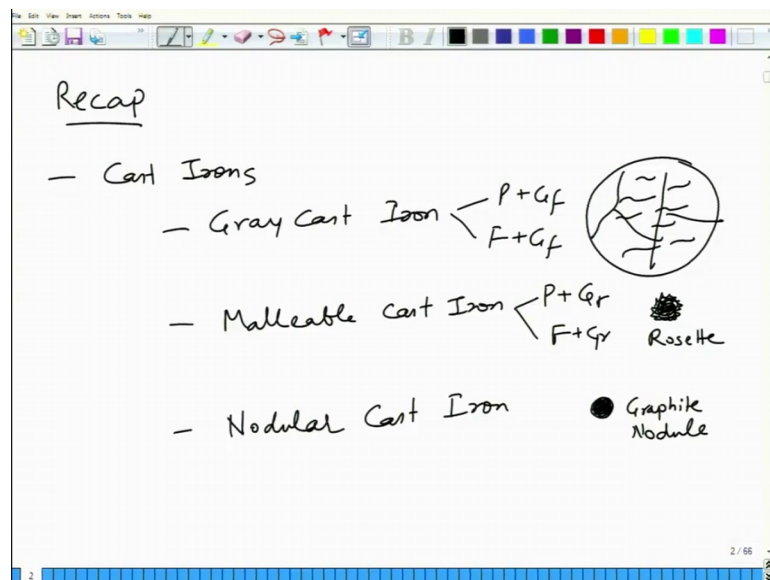 File Edit View Insert Actions Tools Help
Recap
— Cast Irons
— Gray Cast Iron < P + Gf
F + Gf
— Malleable Cast Iron < P + Gr
F + Gr
Rosette
— Nodular Cast Iron
Graphite
Nodule
2 / 66
2